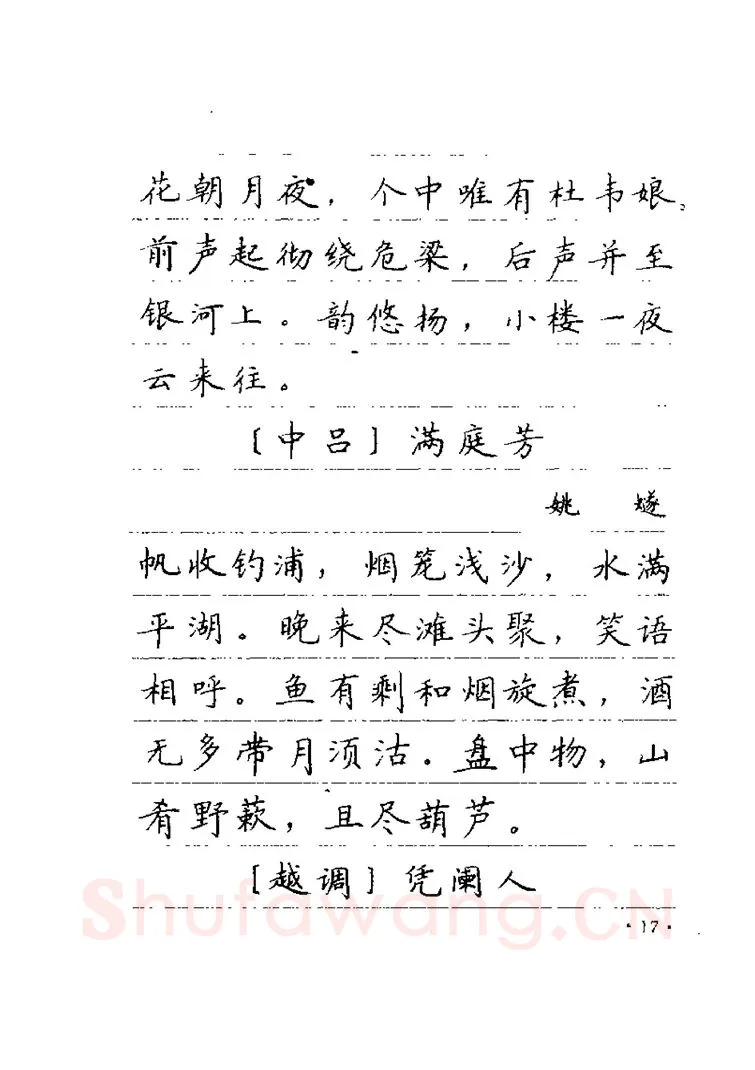 花朝月夜，个中唯有杜韦娘。
前声起彻绕危梁，后声并至
银河上。韵悠扬，小楼一夜
云来往。
［中吕］满庭芳
姚　燧
帆收钓浦，烟笼浅沙，水满
平湖。晚来尽滩头聚，笑语
相呼。鱼有剩和烟旋煮，酒
无多带月须沽。盘中物，山
肴野蔌，且尽葫芦。
［越调］凭阑人
Shufawang.CN
·17·